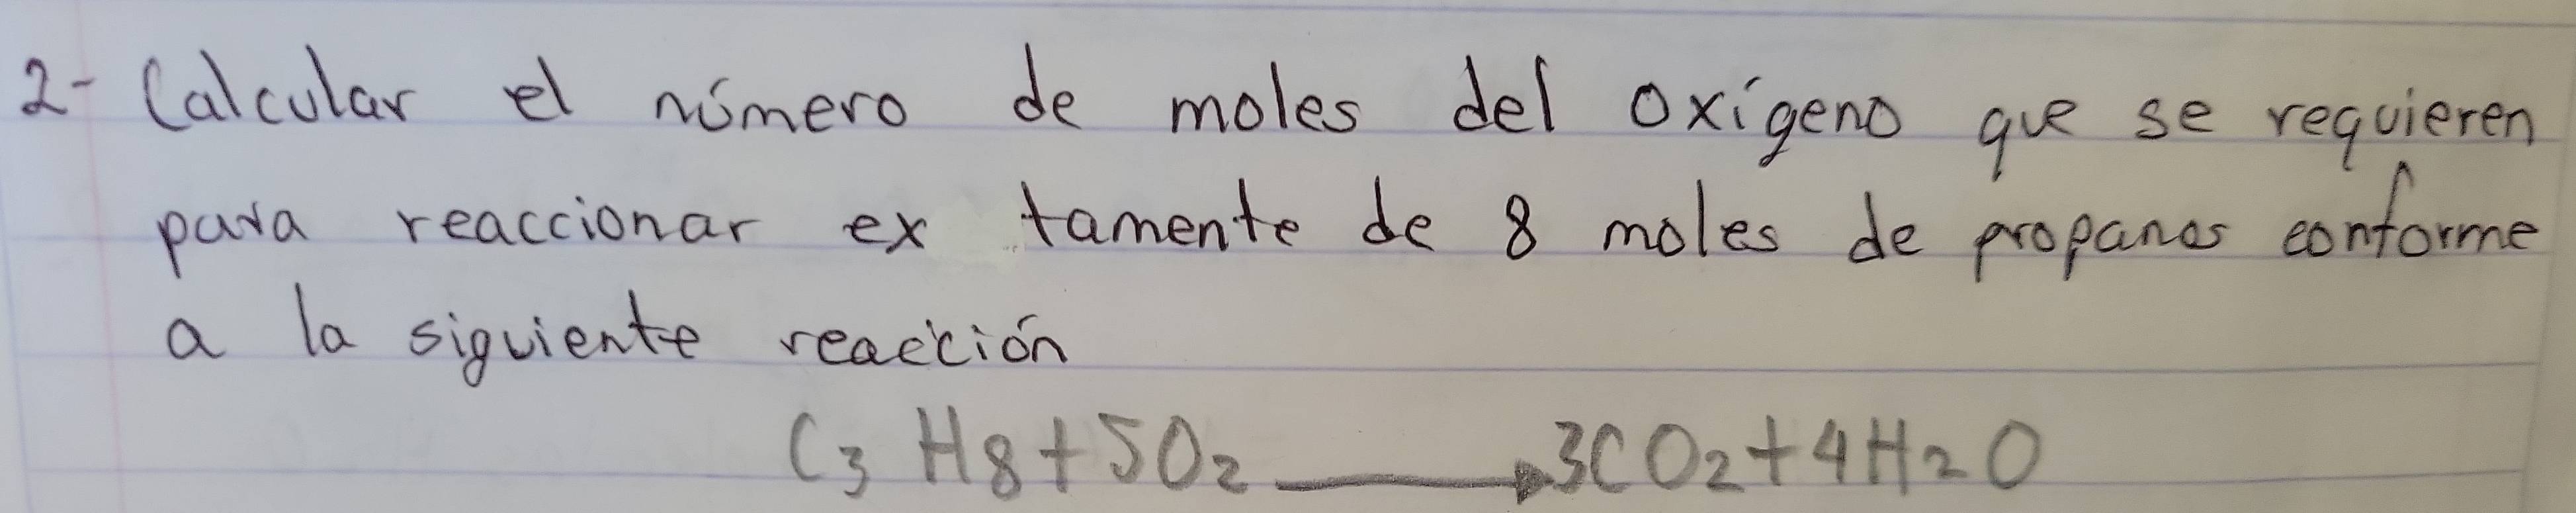 2- Calcular el número de moles del oxígeno que se requieren
para reaccionar ex tamente de 8 moles de propanos conforme
a la siguiente reacción
C3 H8 + 5O2 → 3CO2 + 4H2O